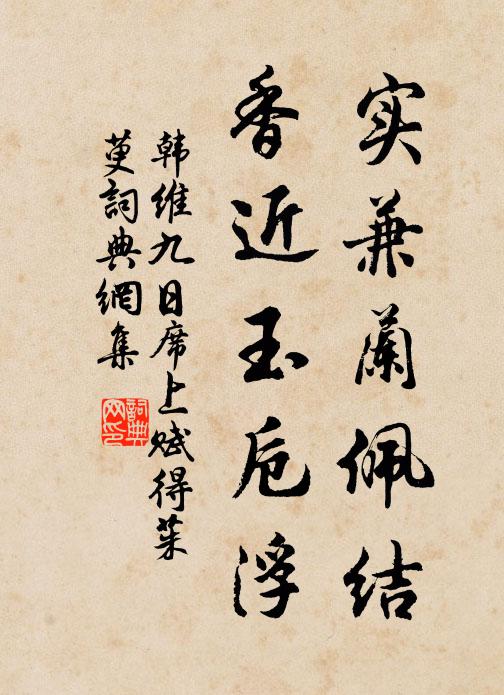 实兼蘭佩结
香近玉卮浮
韩维九日席上赋得茱
萸詞典網集
詞典网印